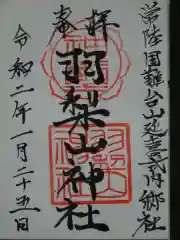 常陸国難台山延喜式内郷社
奉拝
羽梨山神社
令和二年一月二十五日